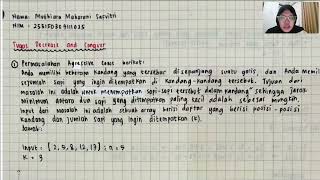 Nama: Muthiara Maharani Safvitri
NIM :
Tugas Decrease and Conquer
① Permasalahan Agressive Cows berikut:
Anda memiliki beberapa kandang yang tersebar di sepanjang suatu garis, dan Anda memiliki
sejumlah sapi yang ingin ditempatkan di kandang-kandang tersebut. Tujuan dari
masalah ini adalah untuk menempatkan sapi-sapi tersebut dalam kandang sehingga jarak
minimum antara dua sapi yang ditempatkan paling kecil adalah sebesar mungkin.
Input dari masalah ini adalah sebuah array berisi daftar yang berisi posisi-posisi
kandang dan jumlah sapi yang ingin ditempatkan (k).
Jawab:
Input: {2, 5, 8, 12, 17} ; n = 5
K = 3